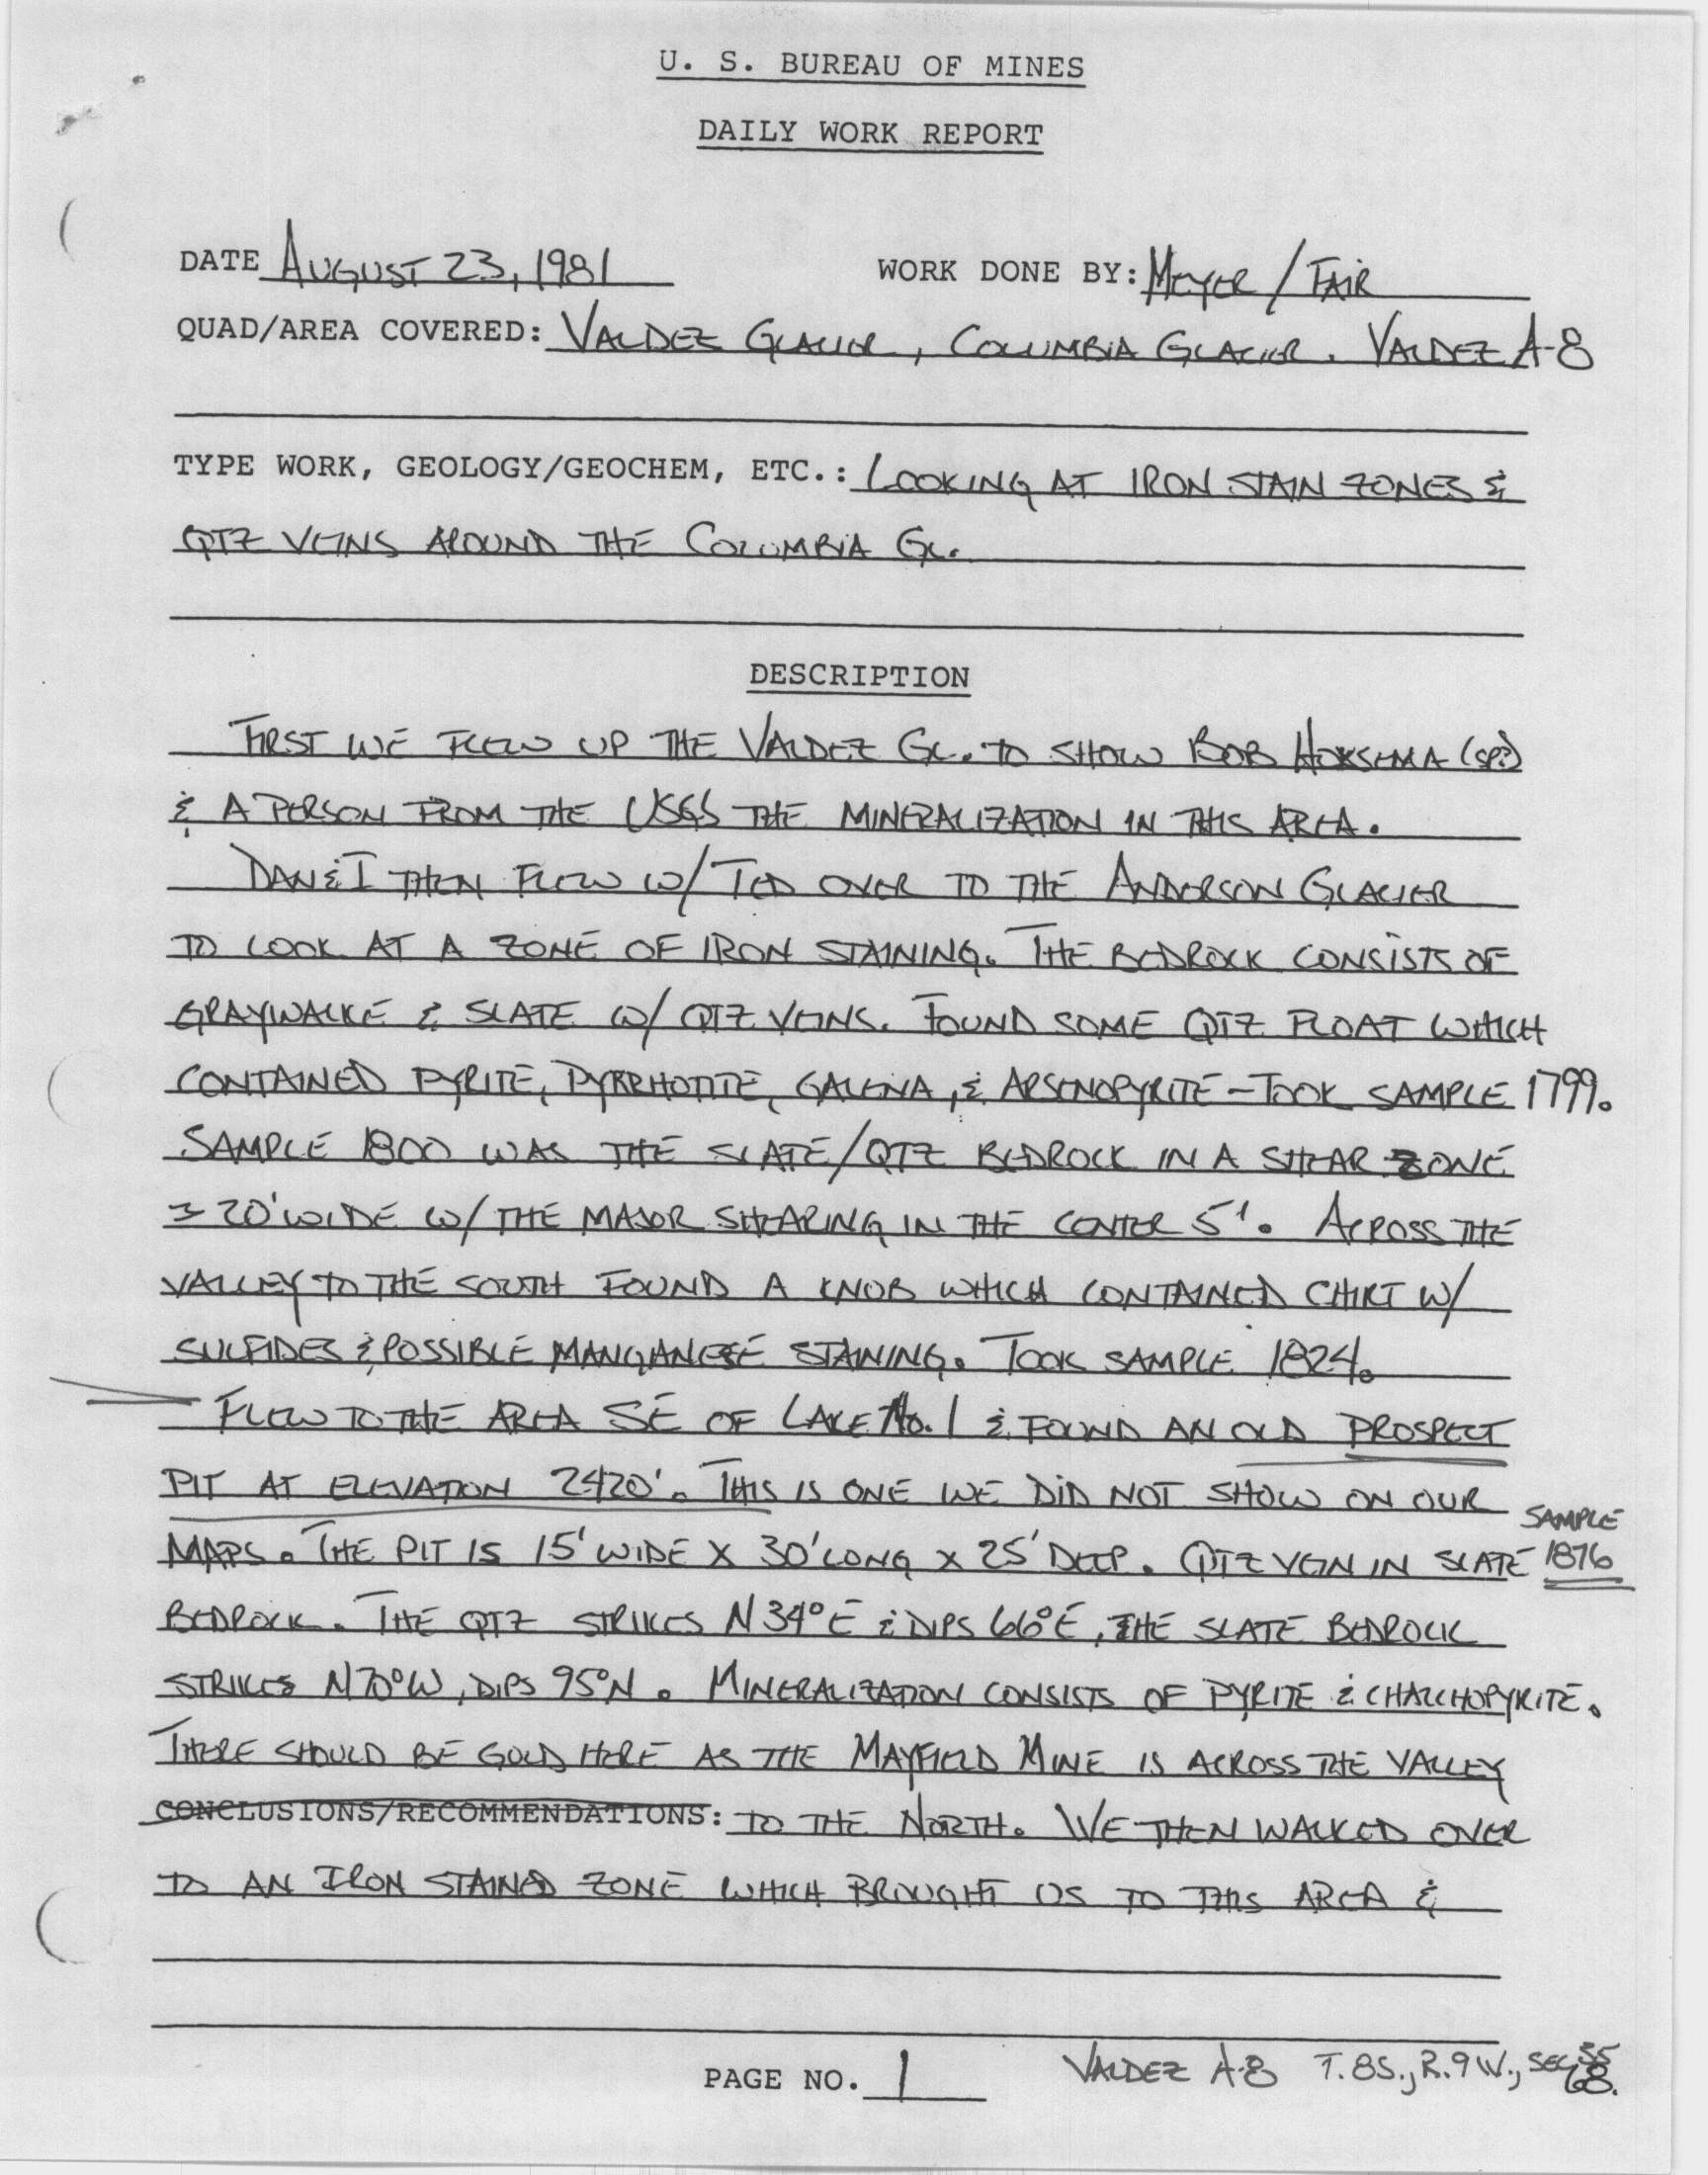 U. S. BUREAU OF MINES
DAILY WORK REPORT
DATE AUGUST 23, 1981 WORK DONE BY: MEYER / FAIR
QUAD/AREA COVERED: VALDEZ GLACIER, COLUMBIA GLACIER. VALDEZ A-8
TYPE WORK, GEOLOGY/GEOCHEM, ETC.: LOOKING AT IRON STAIN ZONES &
QTZ VEINS AROUND THE COLUMBIA GL.
DESCRIPTION
FIRST WE FLEW UP THE VALDEZ GL. TO SHOW BOB HOKSEMA (SP?)
& A PERSON FROM THE USGS THE MINERALIZATION IN THIS AREA.
DAN & I THEN FLEW W/ TED OVER TO THE ANDERSON GLACIER
TO LOOK AT A ZONE OF IRON STAINING. THE BEDROCK CONSISTS OF
GRAYWALKE & SLATE W/ QTZ VEINS. FOUND SOME QTZ FLOAT WHICH
CONTAINED PYRITE, PYRRHOTITE, GALENA, & ARSENOPYRITE - TOOK SAMPLE 1799.
SAMPLE 1800 WAS THE SLATE/QTZ BEDROCK IN A SHEAR ZONE
20' WIDE W/ THE MAJOR SHEARING IN THE CENTER 5'. ACROSS THE
VALLEY TO THE SOUTH FOUND A KNOB WHICH CONTAINED CHERT W/
SULFIDES & POSSIBLE MANGANESE STAINING. TOOK SAMPLE 1824.
FLEW TO THE AREA SE OF LAKE No. 1 & FOUND AN OLD PROSPECT
PIT AT ELEVATION 2420'. THIS IS ONE WE DID NOT SHOW ON OUR
MAPS. THE PIT IS 15' WIDE X 30' LONG X 25' DEEP. QTZ VEIN IN SLATE SAMPLE 1876
BEDROCK. THE QTZ STRIKES N 34° E & DIPS 66° E, THE SLATE BEDROCK
STRIKES N 70° W, DIPS 95° N. MINERALIZATION CONSISTS OF PYRITE & CHALCHOPYRITE.
THERE SHOULD BE GOLD HERE AS THE MAYFIELD MINE IS ACROSS THE VALLEY
CONCLUSIONS/RECOMMENDATIONS: TO THE NORTH. WE THEN WALKED OVER
TO AN IRON STAINED ZONE WHICH BROUGHT US TO THIS AREA &
PAGE NO. 1 VALDEZ A-8 T. 8S., R. 9 W., SEC